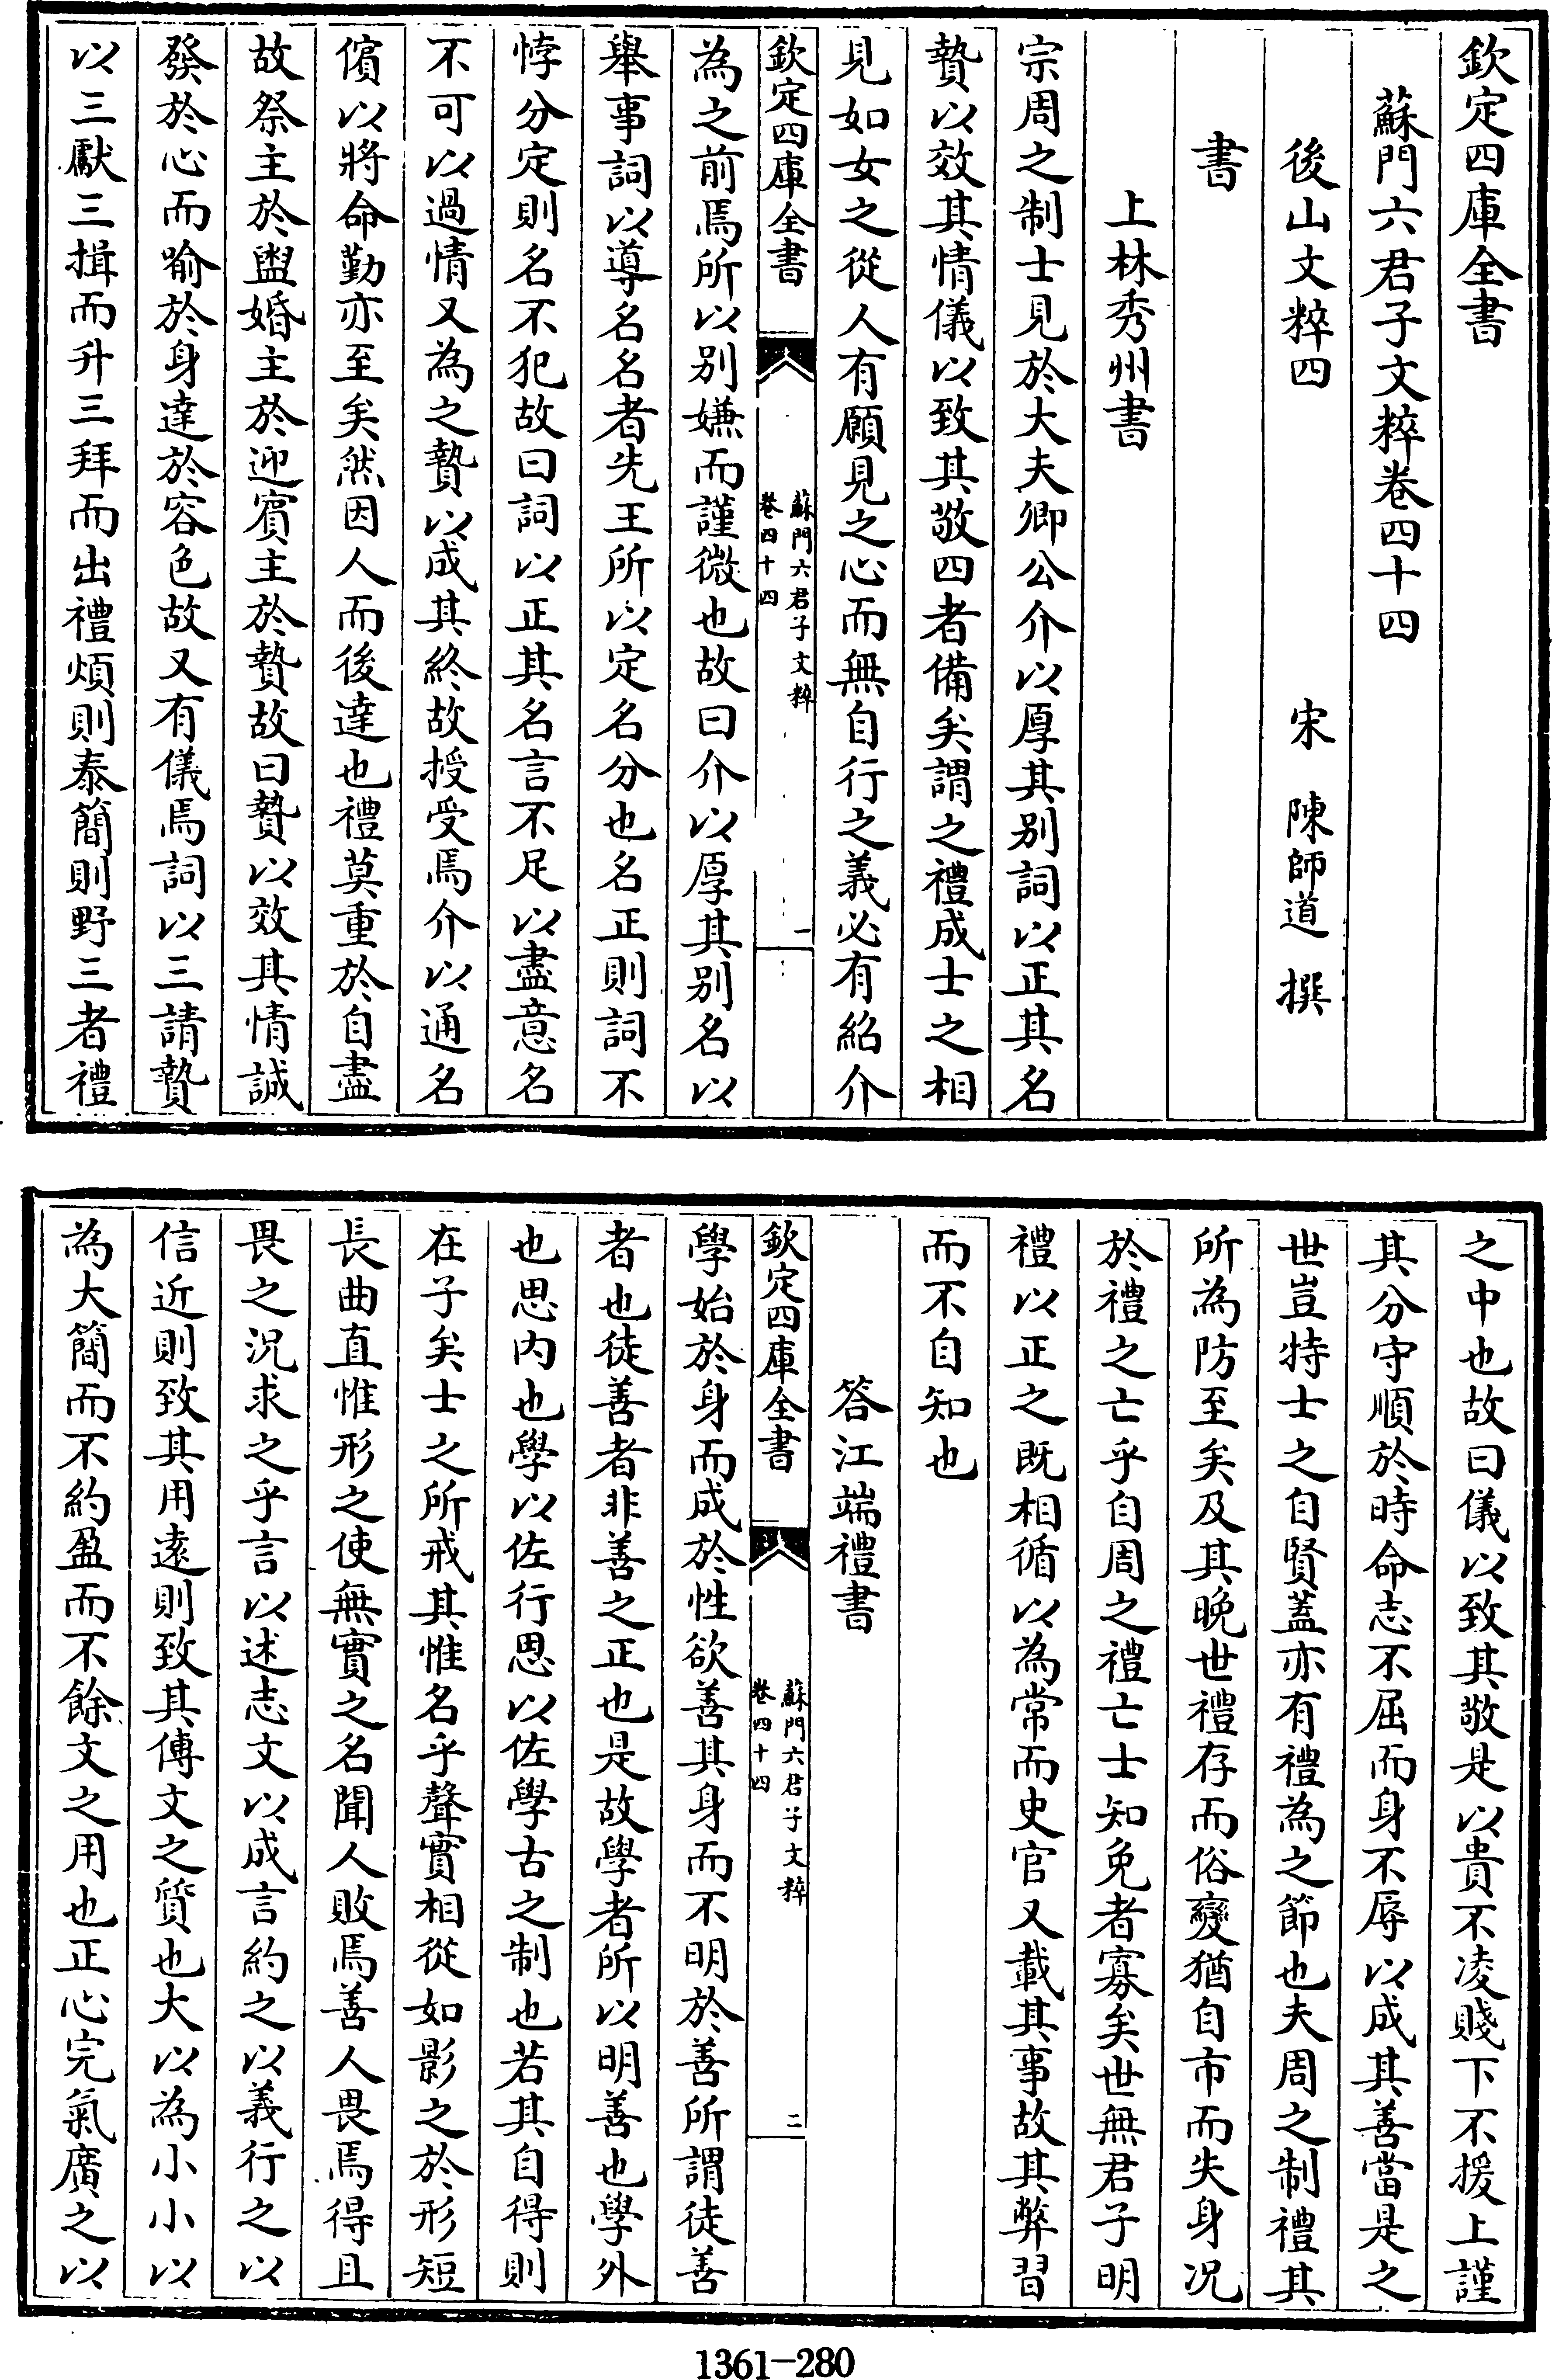 欽定四庫全書
蘇門六君子文粹卷四十四
後山文粹四　宋　陳師道　撰
書
上林秀州書
宗周之制士見於大夫卿公介以厚其别詞以正其名
贄以效其情儀以致其敬四者備矣謂之禮成士之相
見如女之從人有願見之心而無自行之義必有紹介
欽定四庫全書
蘇門六君子文粹
卷四十四
一
為之前焉所以别嫌而謹微也故曰介以厚其别名以
舉事詞以導名名者先王所以定名分也名正則詞不
悖分定則名不犯故曰詞以正其名言不足以盡意名
不可以過情又為之贄以成其終故授受焉介以通名
儐以將命勤亦至矣然因人而後達也禮莫重於自盡
故祭主於盥婚主於迎賓主於贄故曰贄以效其情誠
發於心而喻於身達於容色故又有儀焉詞以三請贄
以三獻三揖而升三拜而出禮煩則泰簡則野三者禮
之中也故曰儀以致其敬是以貴不凌賤下不援上謹
其分守順於時命志不屈而身不辱以成其善當是之
世豈特士之自賢蓋亦有禮為之節也夫周之制禮其
所為防至矣及其晚世禮存而俗變猶自市而失身况
於禮之亡乎自周之禮亡士知免者寡矣世無君子明
禮以正之既相循以為常而史官又載其事故其弊習
而不自知也
答江端禮書
欽定四庫全書
蘇門六君子文粹
卷四十四
二
學始於身而成於性欲善其身而不明於善所謂徒善
者也徒善者非善之正也是故學者所以明善也學外
也思内也學以佐行思以佐學古之制也若其自得則
在子矣士之所戒其惟名乎聲實相從如影之於形短
長曲直惟形之使無實之名聞人敗焉善人畏焉得且
畏之況求之乎言以述志文以成言約之以義行之以
信近則致其用遠則致其傳文之質也大以為小小以
為大簡而不約盈而不餘文之用也正心完氣廣之以
1361-280